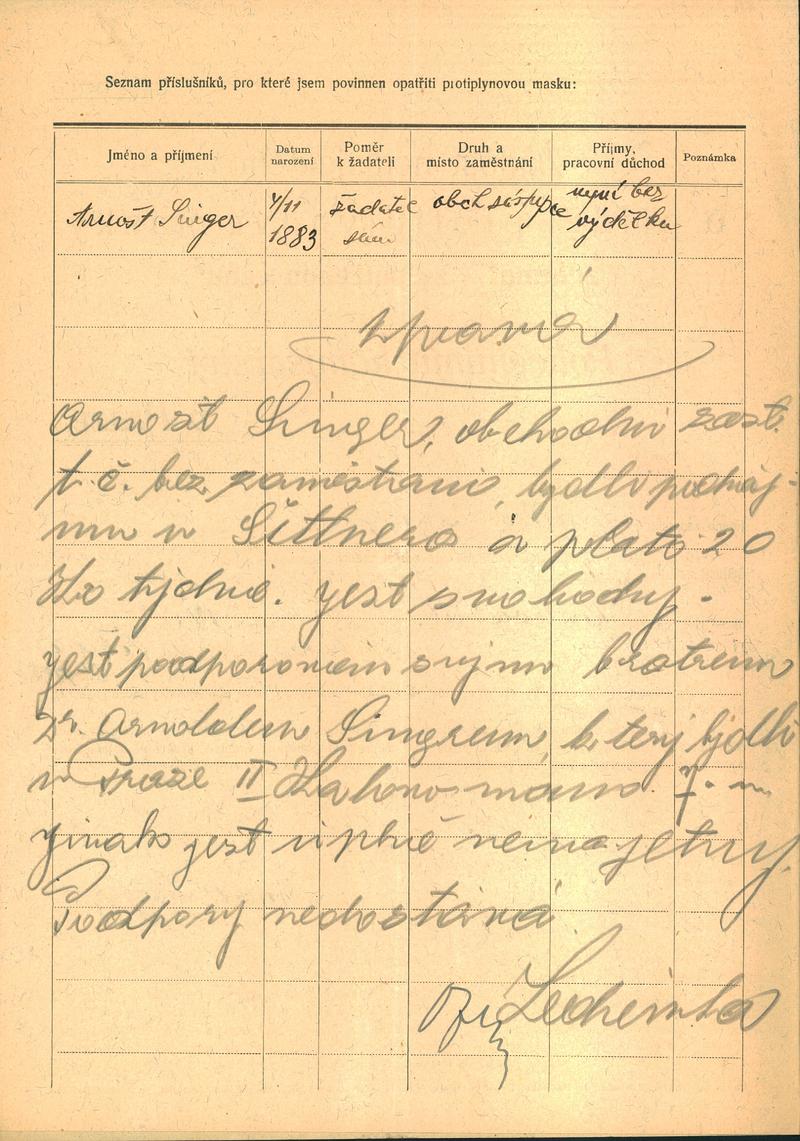 Seznam příslušníků, pro které jsem povinnen opatřiti protiplynovou masku:
Jméno a příjmení Datum narození Poměr k žadateli Druh a místo zaměstnání Příjmy, pracovní důchod Poznámka
Arnošt Singer 4/11 1883 žadatel sám obch zástupce nyní bez výdělku
Zpráva
Arnošt Singer, obchodní zást.
t. č. bez zaměstnání, bydlí podnáj-
mu u Šittnera a platí 20
Kč týdně. Jest svobodný.
Jest podporován svým bratrem
Dr. Arnoldem Singrem, který bydlí
v Praze II
Jinak jest úplně nemajetný.
Podpory nedostává